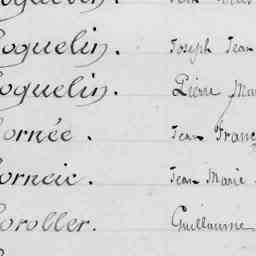 oquelin. Joseph Jean
oquelin. Pierre Ma
ornée. Jean Franç
orneic. Jean Marie
oroller. Guillaume